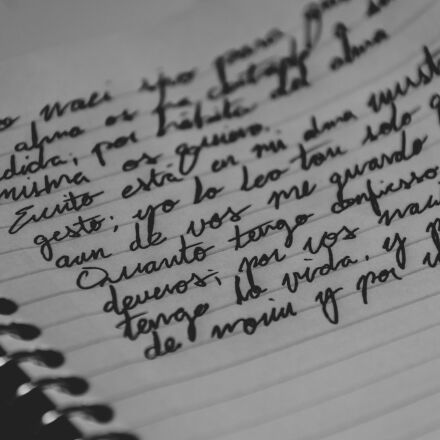 o naci sino para
alma os ha
dida; por hábito del alma
misma os quiero.
Escrito está en mi alma vuestro
gesto; yo lo leo tan solo q
aun de vos me guardo
Quanto tengo confieso
deveros; por vos naci
tengo la vida, y p
de morir y por v